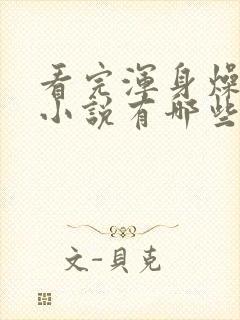 看完渾身燥
小說有哪些
文-貝克